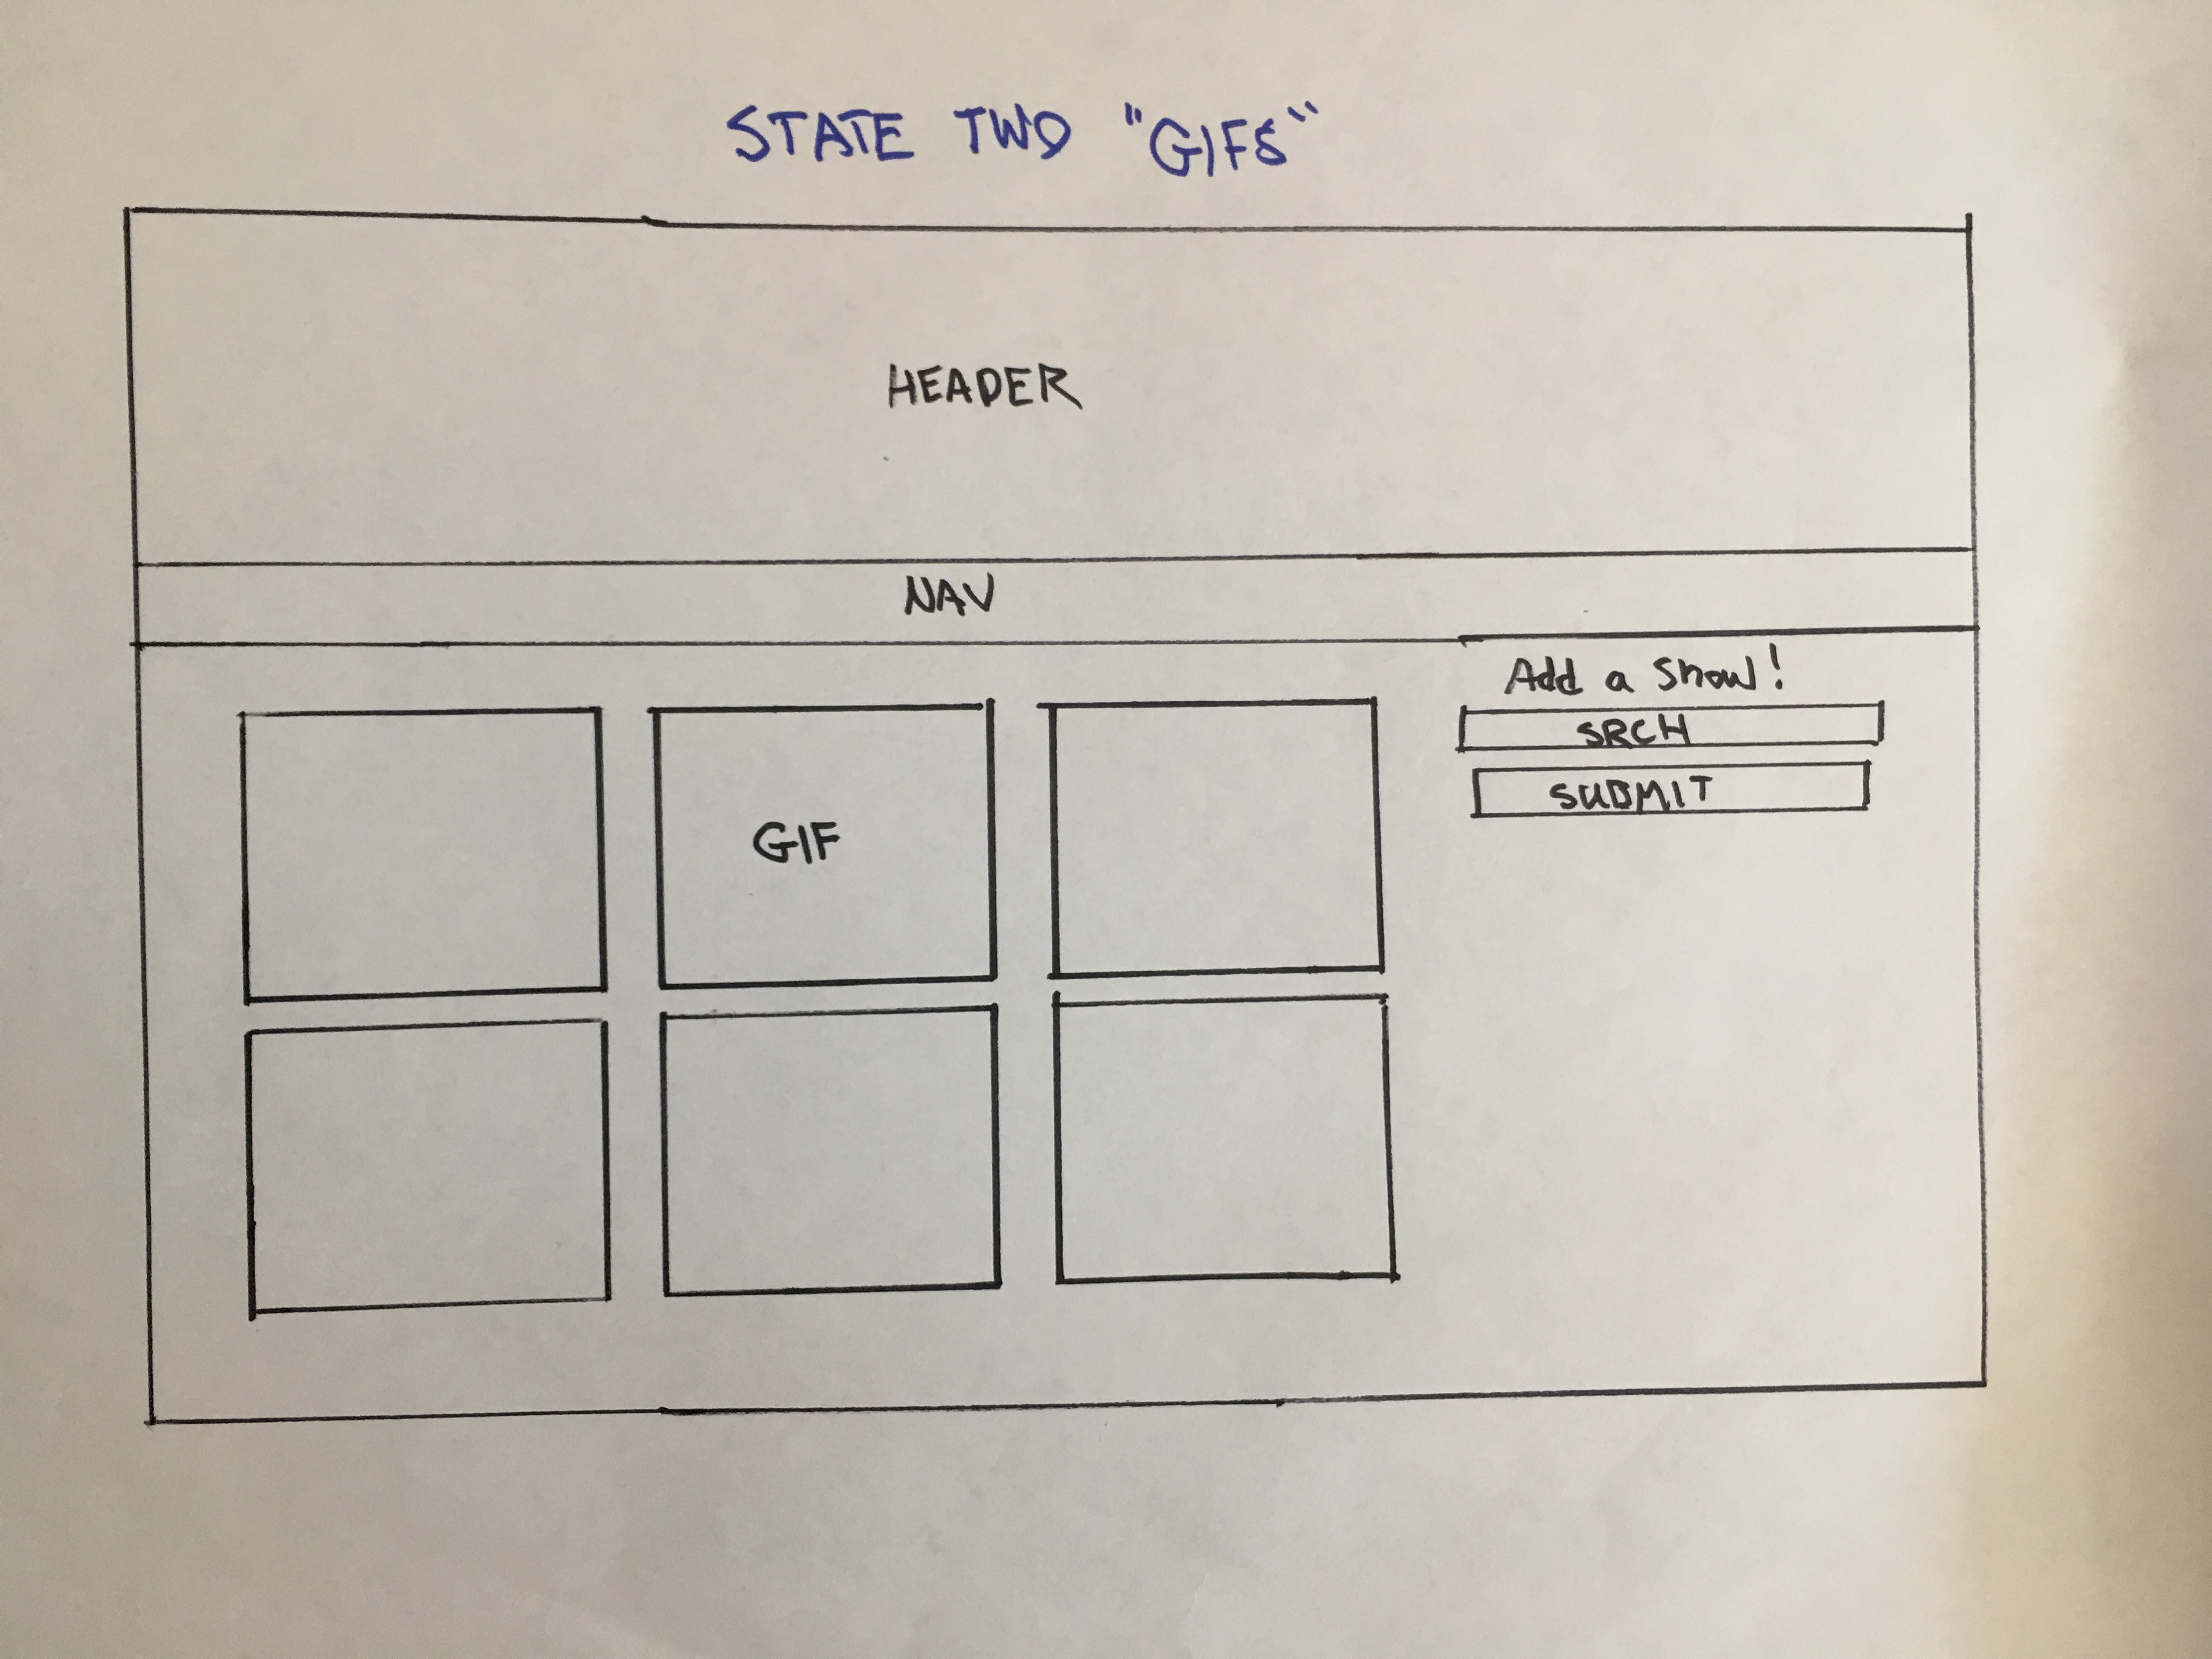 STATE TWO "GIFS"
HEADER
NAV
Add a Show!
SRCH
SUBMIT
GIF